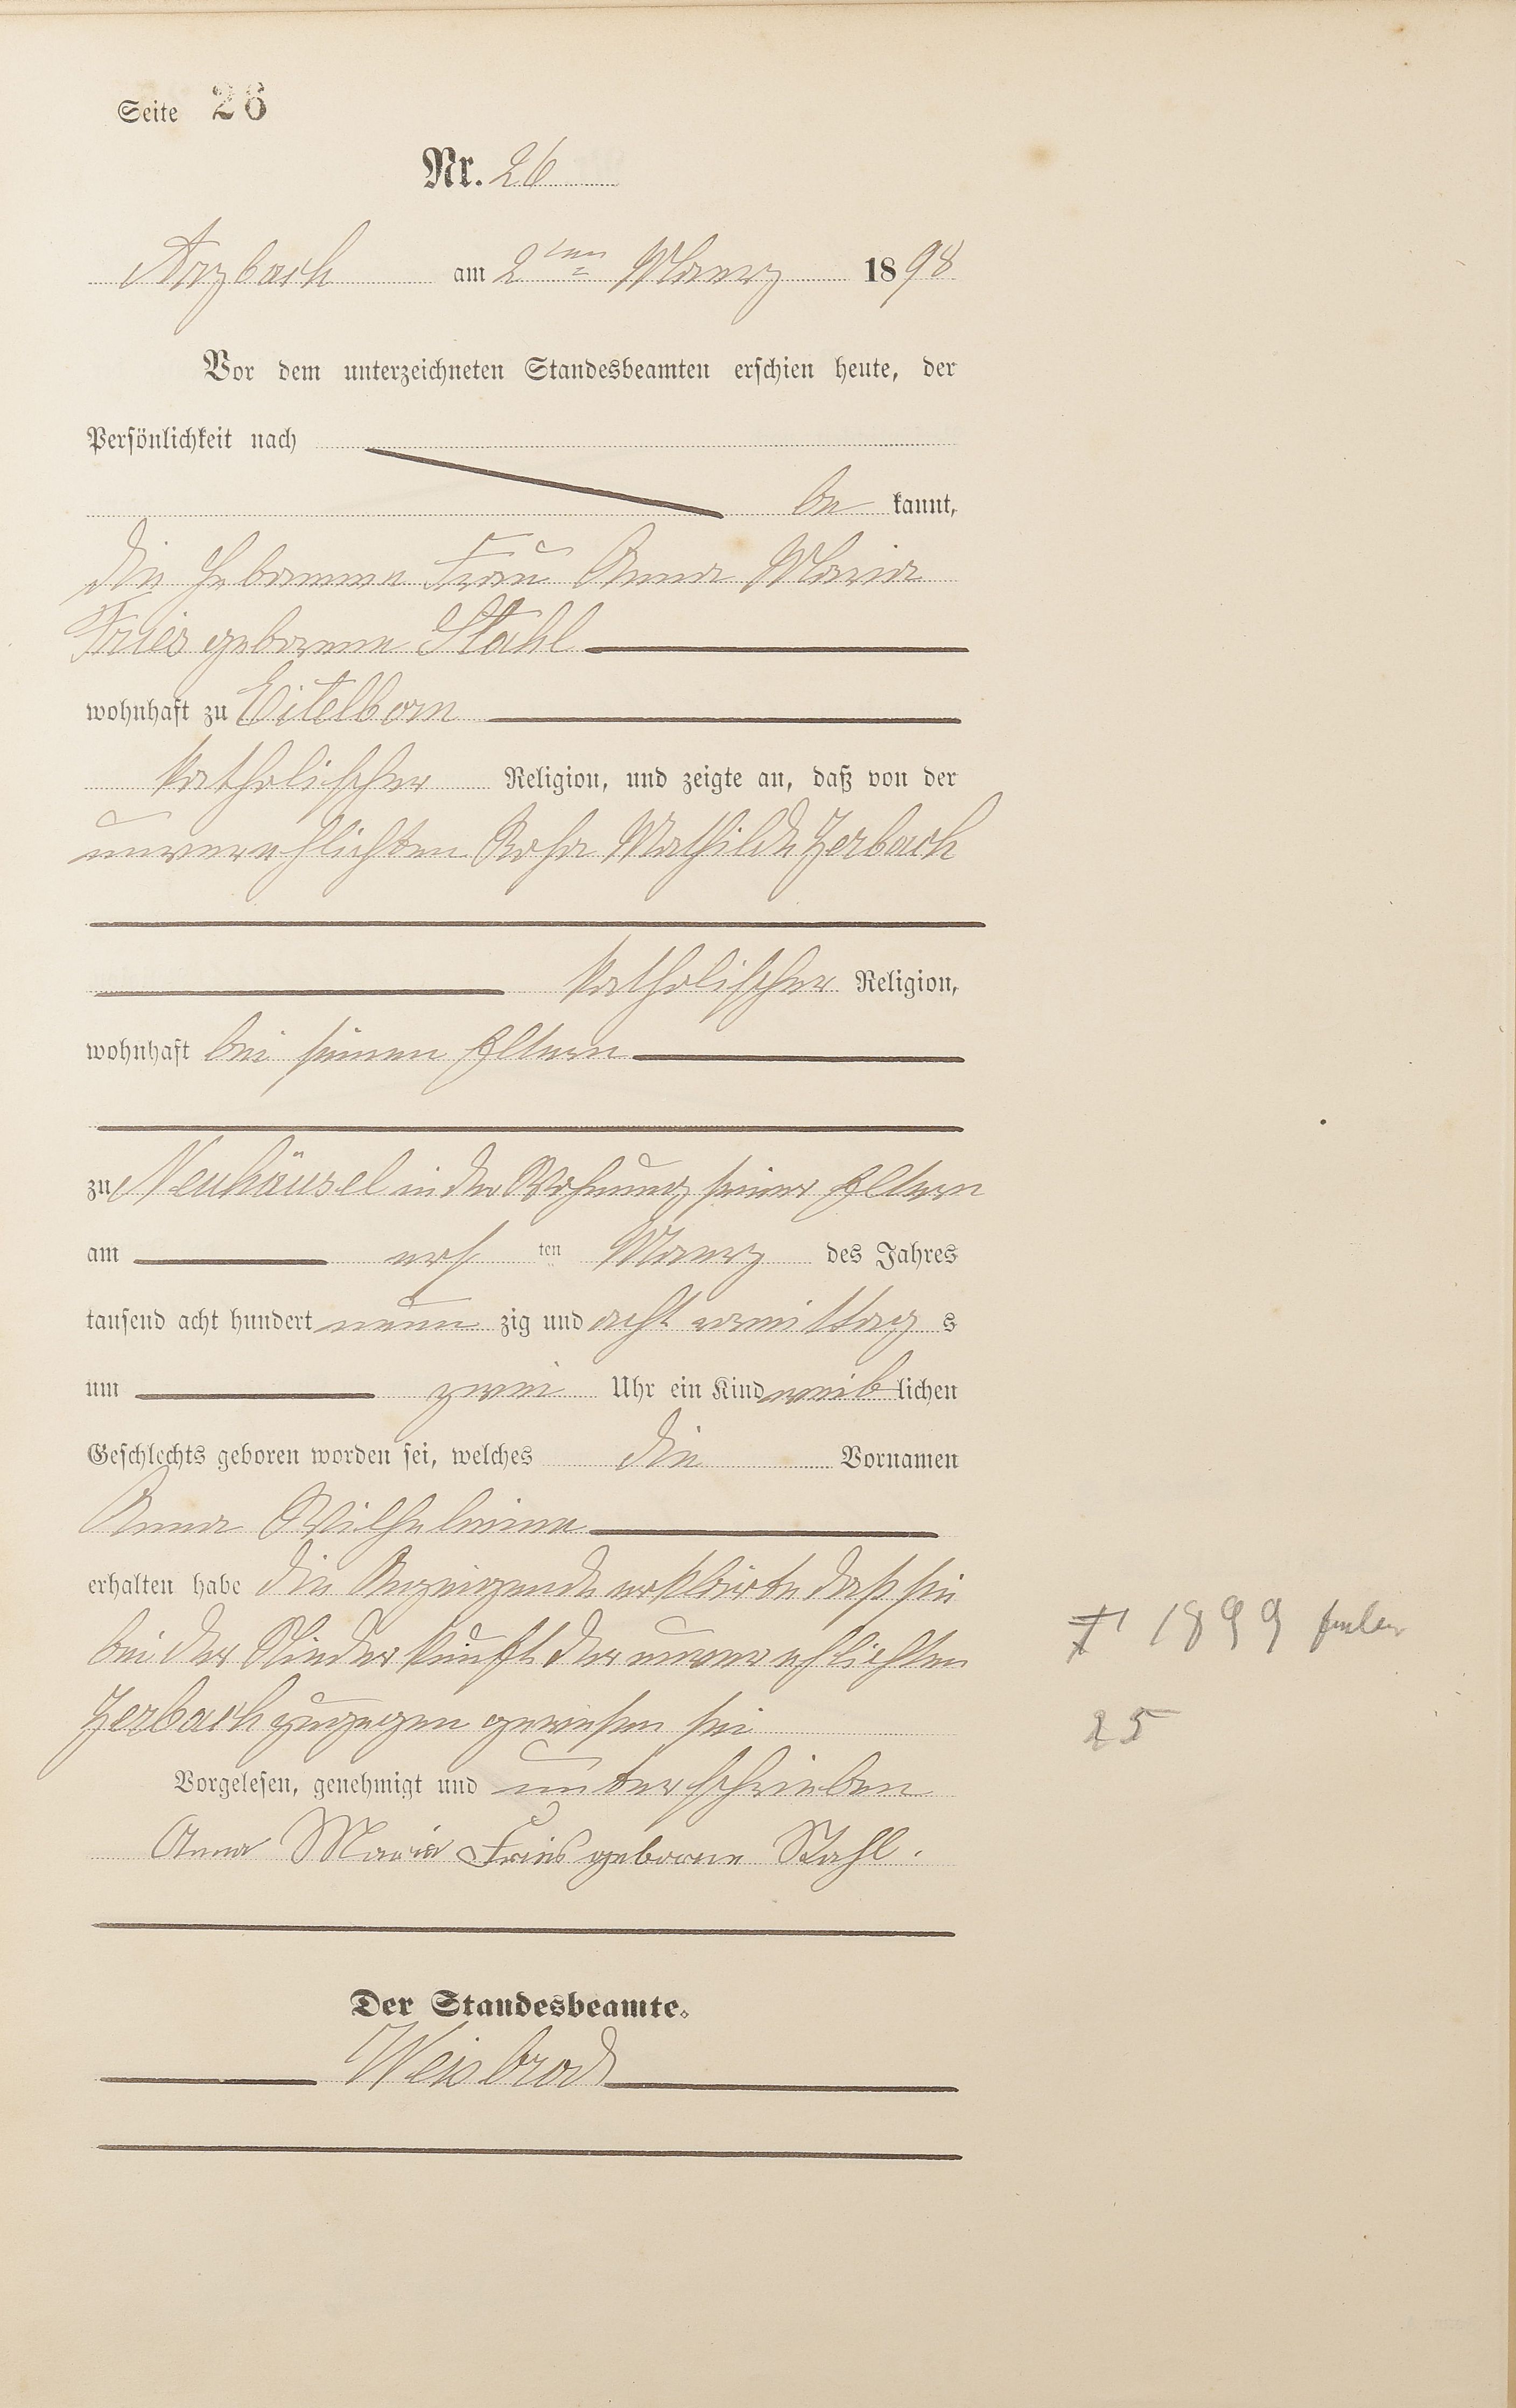 Seite 26
Nr. 26
Arzbach am 2ten Maerz 1898
Vor dem unterzeichneten Standesbeamten erschien heute, der
Persönlichkeit nach
be kannt,
die Hebamme Frau Anna Maria
Fries geborene Stahl
wohnhaft zu Eitelborn
katholischer Religion, und zeigte an, daß von der
unverehlichten Rosa Mathilde Zerbach
katholischer Religion,
wohnhaft bei seinen Eltern
zu Neuhäusel in der Wohnung seiner Eltern
am ersten Maerz des Jahres
tausend acht hundert neun zig und acht vormittag s
um zwei Uhr ein Kind weiblichen
Geschlechts geboren worden sei, welches die Vornamen
Anna Wilhelmine
erhalten habe die Anzeigende erklärte daß sie
bei der Niederkunft der unverehlichten
Zerbach zugegen gewesen sei
Vorgelesen, genehmigt und unterschrieben
Anna Maria Fries geborne Stahl.
Der Standesbeamte.
Weisbrod
1899
25